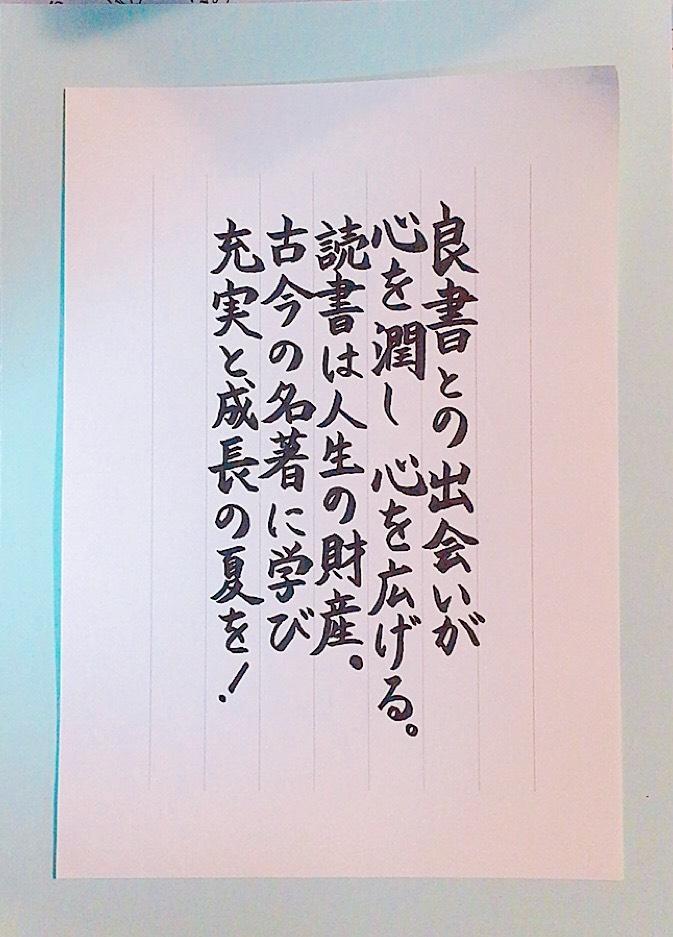 良書との出会いが
心を潤し 心を広げる。
読書は人生の財産。
古今の名著に学び
充実と成長の夏を!